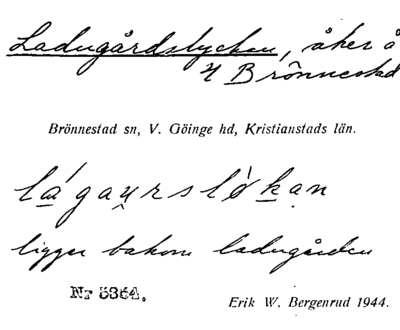 Ladugårdslyckan, åker å
4 Brönnestad
Brönnestad sn, V. Göinge hd, Kristianstads län.
lágau̯rsló̵kan
ligger bakom ladugården
Nr 5364.
Erik W. Bergenrud 1944.